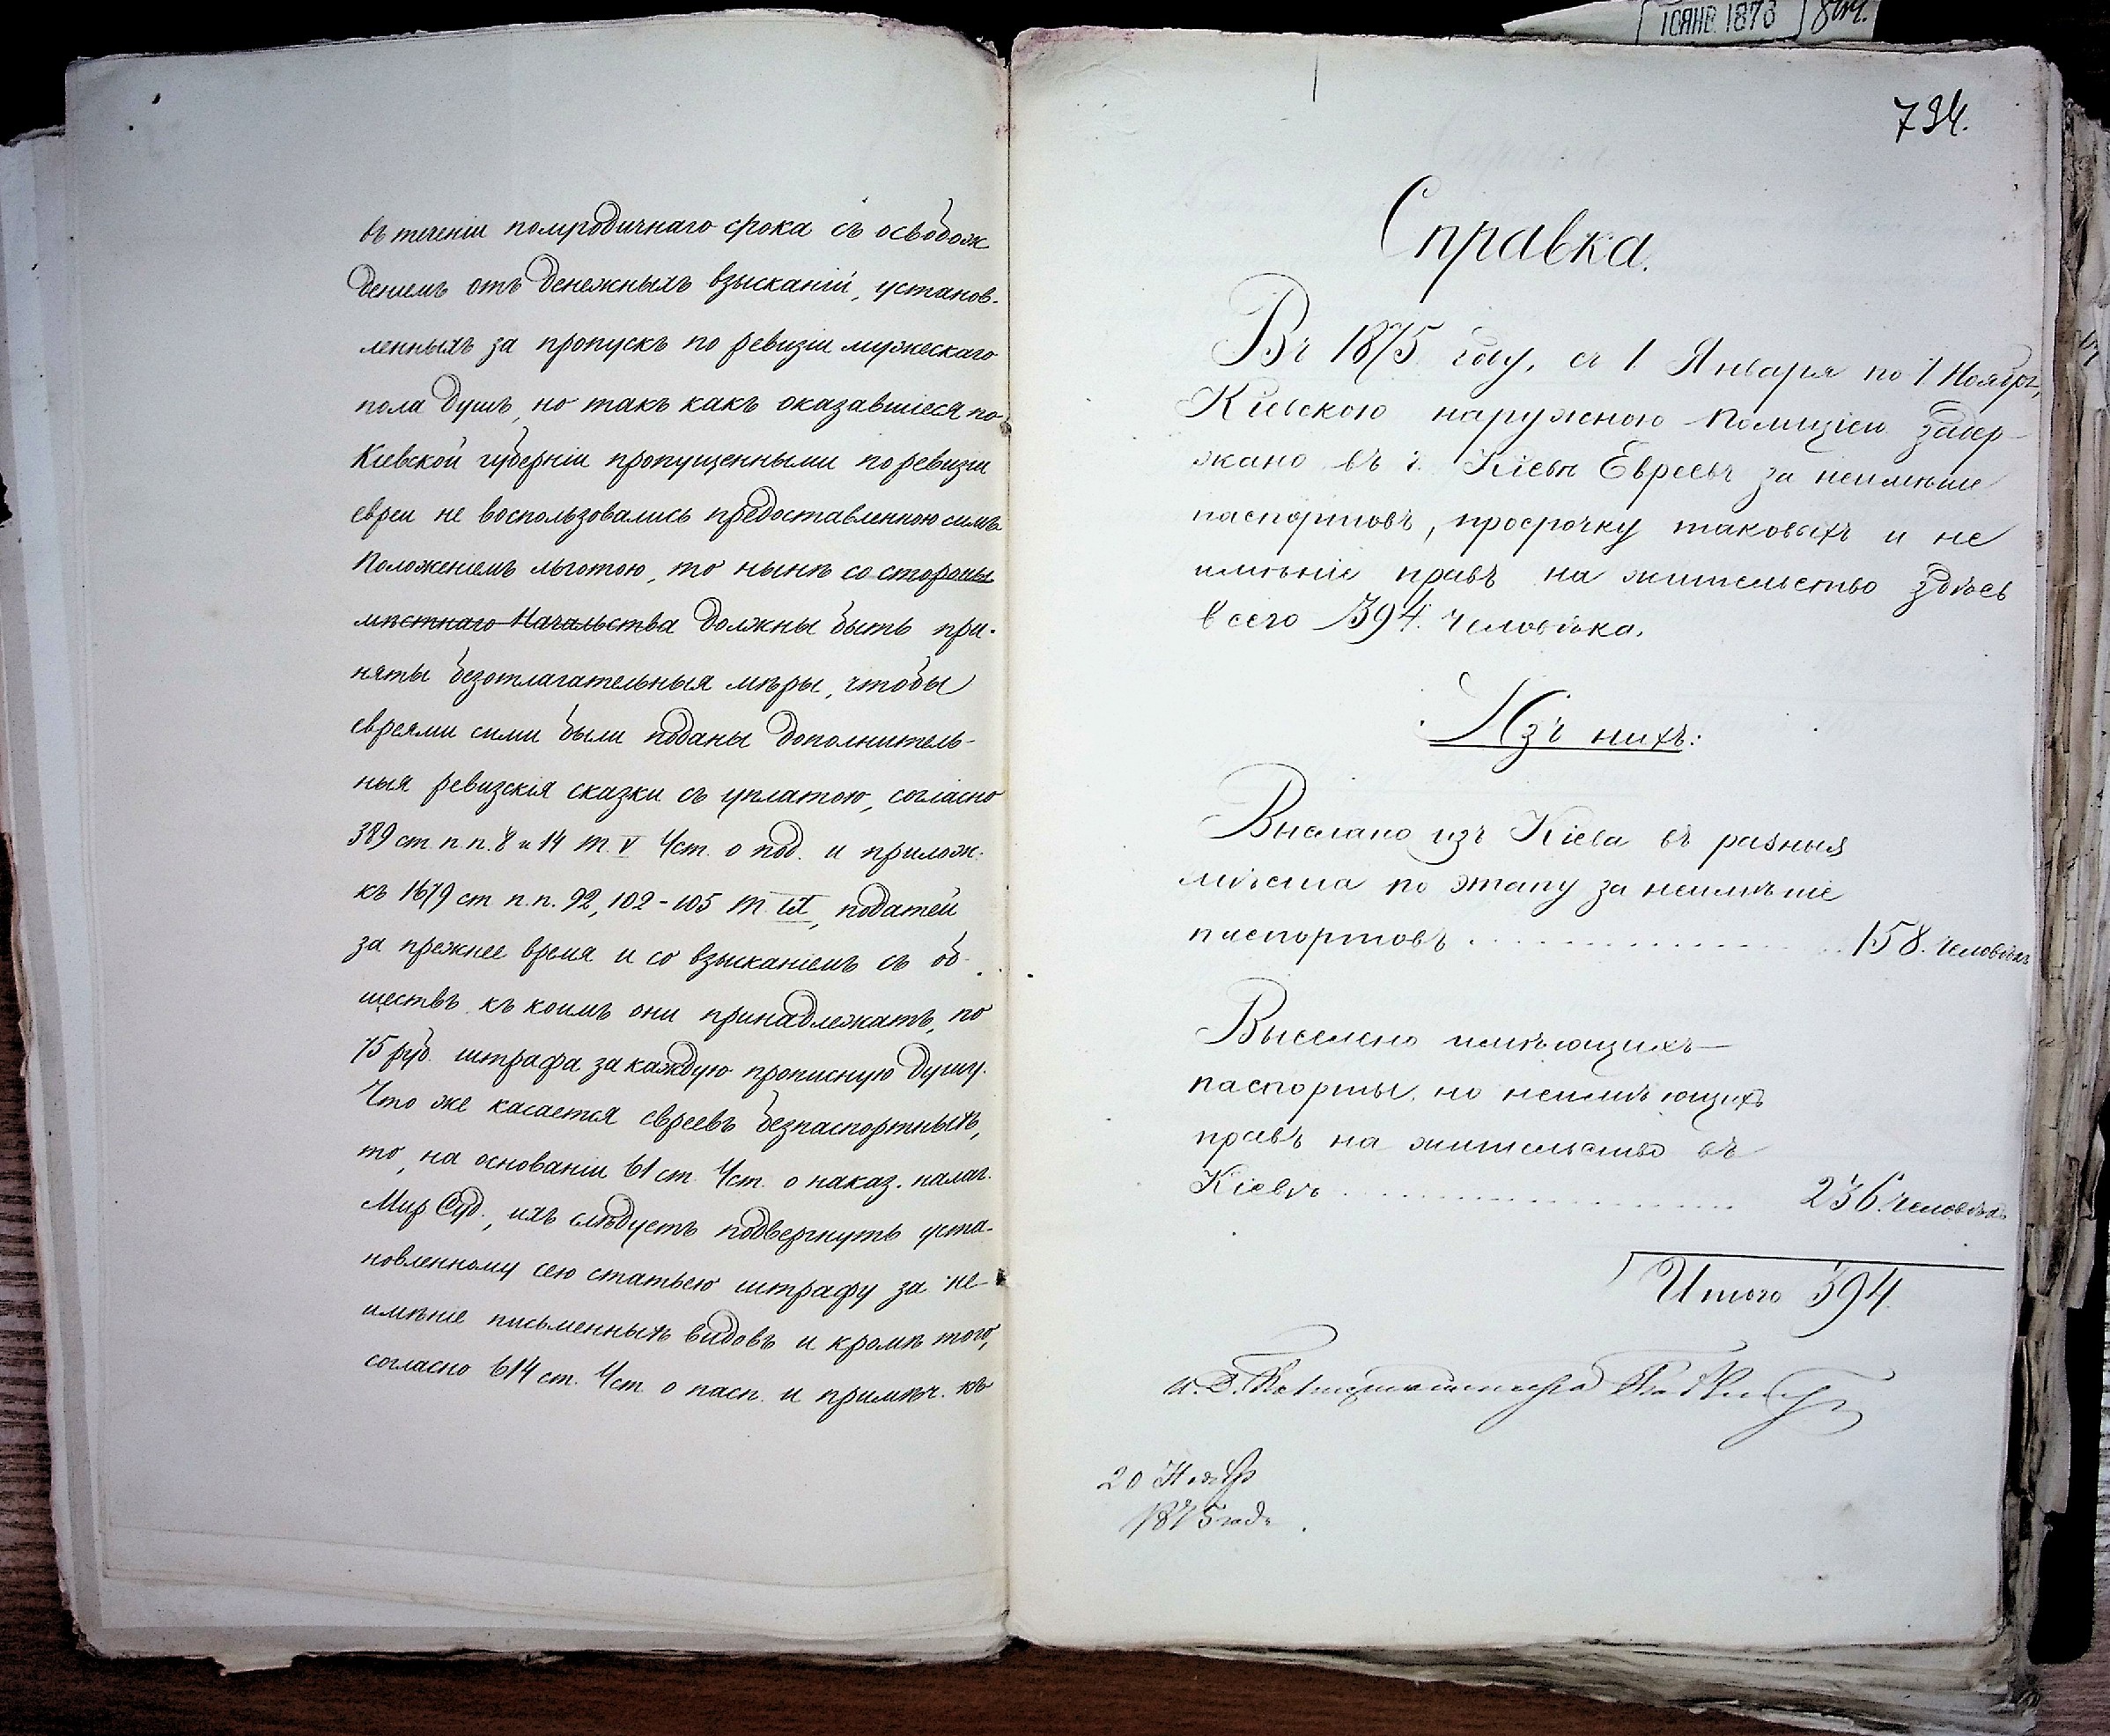 въ теченіи полугодичнаго срока съ освобож
деніемъ отъ денежныхъ взысканій, установ-
ленныхъ за пропускъ по ревизіи мужескаго
пола душъ, но такъ какъ оказавшіеся по
Кіевской губерніи пропущенными по ревизіи
евреи не воспользовались предоставленною симъ
Положеніемъ льготою, то нынѣ со стороны
мѣстнаго Начальства должны быть при-
няты безотлагательныя мѣры, чтобы
евреями сими были поданы дополнитель-
ныя ревизскія сказки съ уплатою, согласно
389 ст. п.п. 8 и 14 т. V Уст. о под. и прилож.
къ 1679 ст п.п. 92, 102-105 т. IX, податей
за прежнее время и со взысканіемъ съ об-
ществъ къ коимъ они принадлежатъ, по
75 руб. штрафа за каждую прописную душу.
Что же касается евреевъ безпаспортныхъ,
то, на основаніи 61 ст. Уст. о наказ. налаг.
Мир Суд., ихъ слѣдуетъ подвергнуть уста-
новленному сею статьею штрафу за не-
имѣніе письменныхъ видовъ и кромѣ того,
согласно 614 ст. Уст. о пасп. и примѣч. къ
10 ЯНВ. 1876
794.
Справка.
Въ 1875 году, съ 1 Января по 1 Ноября,
Кіевскою наружною Полиціею задер-
жано въ г. Кіевѣ Евреевъ за неимѣніе
паспортовъ, просрочку таковыхъ и не
имѣніе правъ на жительство здѣсь
всего 394. человѣка.
Изъ нихъ:
Выслано изъ Кіева въ разныя
мѣста по этапу за неимѣніе
паспортовъ . . . . . . . . . . 158. человѣкъ
Выселено имѣющихъ
паспорты, но неимѣющихъ
правъ на жительство въ
Кіевѣ . . . . . . . . . . 236. человѣкъ
Итого 394.
и. д. Полицiймейстера
20 Ноября
1875 года.